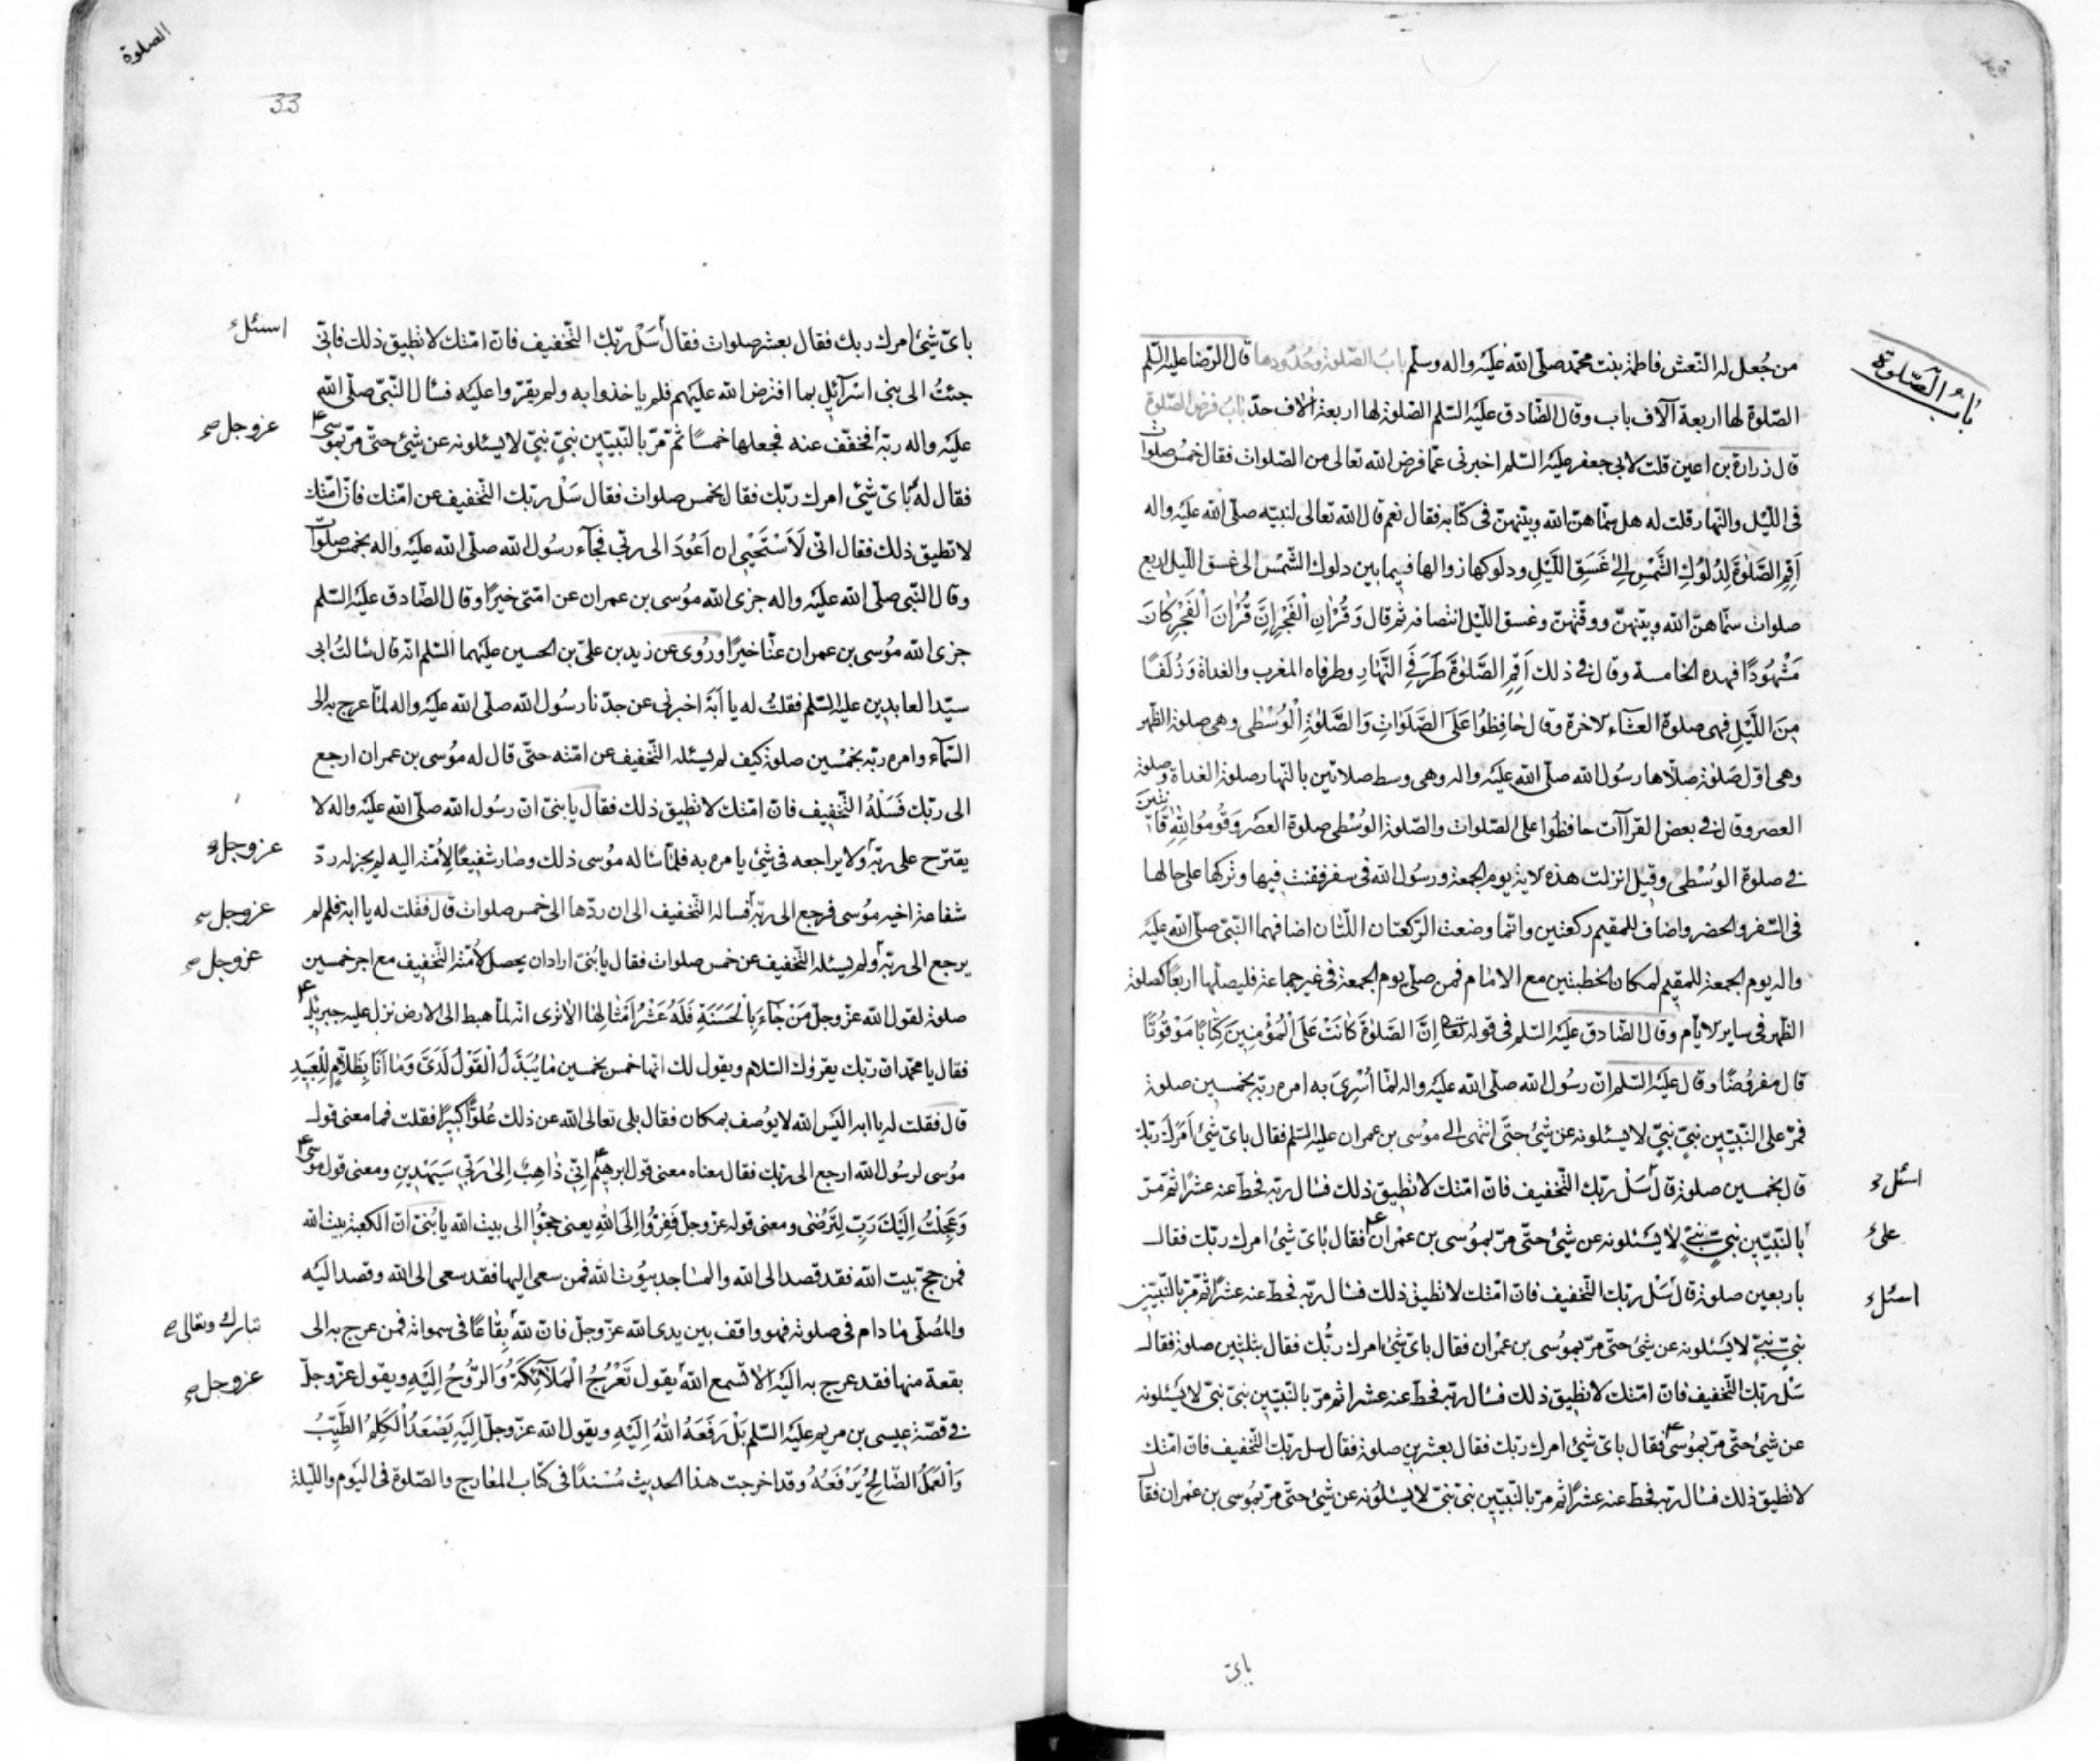 باب الصّلوة
من جُعل له النّعش فاطمة بنت محمّد صلّى الله عليه واله وسلّم باب الصّلوة وحُدودها قال الرّضا عليه السّلم
الصّلوة لها اربعة آلاف باب وقال الصّادق عليه السّلم الصّلوة لها اربعة الاف حدّ باب فرض الصّلوة
قال زرارة بن اعين قلت لابي جعفر عليه السّلم اخبرنى عمّا فرض الله تعالى من الصّلوات فقال خمس صلوات
فى اللّيل والنّهار قلت له هل سمّاهنّ الله وبيّنهنّ فى كتابه فقال نعم قال الله تعالى لنبيّه صلّى الله عليه واله
اَقِمِ الصَّلٰوةَ لِدُلُوكِ الشَّمْسِ اِلىٰ غَسَقِ اللَّيْلِ ودلوكها زوالها فيما بين دلوك الشّمس الى غسق اللّيل اربع
صلوات سمّاهنّ الله وبيّنهنّ ووقّتهنّ وغسق اللّيل انتصافه ثم قال وَقُرْاٰنَ الْفَجْرِ اِنَّ قُرْاٰنَ الْفَجْرِ كٰانَ
مَشْهُودًا فهذه الخامسة وقال فى ذلك اَقِمِ الصَّلٰوةَ طَرَفَىِ النَّهٰارِ وطرفاه المغرب والغداة وَزُلَفًا
مِنَ اللَّيْلِ فهى صلوة العشاء لاخرة وقال حٰافِظُوا عَلَى الصَّلَوٰاتِ وَالصَّلٰوةِ الْوُسْطٰى وهى صلوة الظهر
وهى اوّل صلوة صلّاها رسول الله صلّى الله عليه واله وهى وسط صلاتين بالنّهار صلوة الغداة وصلوة
العصر وقال فى بعض القراآت حافظوا على الصّلوات والصّلوة الوُسْطى صلوة العصر وَقُومُوا لِلّٰهِ قٰانِتِينَ
فى صلوة الوُسْطى وقيل انزلت هذه لاية يوم الجمعة ورسُول الله فى سفر فقنت فيها وتركها على حالها
فى السّفر والحضر واضاف للمقيم ركعتين وانّما وضعت الرّكعتان اللّتان اضافهما النّبىّ صلّى الله عليه
واله يوم الجمعة للمقيم لمكان الخطبتين مع الامام فمن صلّى يوم الجمعة فى غير جماعة فليصلّها اربعًا كصلوة
الظّهر فى ساير لايّام وقال الصّادق عليه السّلم فى قوله تعالى اِنَّ الصَّلٰوةَ كٰانَتْ عَلَى الْمُؤْمِنِينَ كِتٰابًا مَوْقُوتًا
قال مفروضًا وقال عليه السّلم انّ رسُول الله صلّى الله عليه واله لمّا اُسْرِىَ به امره ربّه بخمسين صلوة
فمرّ على النّبيّين نبىّ نبىّ لايسئلونه عن شئ حتّى انتهى الى موسى بن عمران عليه السّلم فقال باىّ شئ اَمَرَكَ ربّك
قال بخمسين صلوة قال سَلْ ربّك التّخفيف فانّ امّتك لا تطيق ذلك فسال ربّه فحطّ عنه عشرًا ثم مرّ
اسئل
بالنّبيّين نبىّ نبىّ لا يسئلونه عن شئ حتّى مرّ بموُسى بن عمران فقال باىّ شئ امرك ربّك فقال
على
باربعين صلوة قال سَلْ ربّك التّخفيف فانّ امّتك لا تطيق ذلك فسال ربّه فحطّ عنه عشرًا ثمّ مرّ بالنّبيّين
اسئل
نبىّ نبىّ لا يسئلونه عن شئ حتّى مرّ بموُسى بن عمْران فقال باىّ شئ امرك ربُّك فقال بثلثين صلوة فقال
سَلْ ربّك التّخفيف فانّ امّتك لا تطيق ذلك فسال ربّه فحطّ عنه عشرا ثم مرّ بالنّبيّين نبىّ نبىّ لا يسئلونه
عن شئ حتّى مرّ بموُسى فقال باىّ شئ امرك ربّك فقال بعشرين صلوة فقال سل ربّك التّخفيف فانّ امّتك
لا تطيق ذلك فسال ربّه فحطّ عنه عشرًا ثم مرّ بالنّبيّين نبىّ نبىّ لا يسئلونه عن شئ حتّى مرّ بموُسى بن عمْران فقال
باىّ
الصلوة
33
باىّ شئ امرك ربك فقال بعشر صلوات فقال سَلْ ربّك التّخفيف فانّ امّتك لا تطيق ذلك فانّى
اسئل
جئتُ الى بنى اسرآئيل بما افترض الله عليهم فلم ياخذوا به ولم يقرّوا عليه فسال النّبىّ صلّى الله
عليه واله ربّه فخفّف عنه فجعلها خمسًا ثمّ مرّ بالنّبيّين نبىّ نبىّ لا يسئلونه عن شئ حتّى مرّ بموسى
عزوجل صح
فقال له باىّ شئ امرك ربّك فقال بخمس صلوات فقال سَلْ ربّك التّخفيف عن امّتك فانّ امّتك
لا تطيق ذلك فقال انّى لَاَسْتَحْيِى ان اَعُودَ الى ربّى فجآء رسُول الله صلّى الله عليه واله بخمس صلوات
وقال النّبى صلّى الله عليه واله جزى الله موُسى بن عمران عن امّتى خيرًا وقال الصّادق عليه السّلم
جزى الله موُسى بن عمران عنّا خيرًا ورُوى عن زيد بن علىّ بن الحسين عليهما السّلم انّه قال سالتُ ابى
سيّد العابدين عليه السّلم فقلتُ له يا اَبَةَ اخبرنى عن جدّنا رسُول الله صلّى الله عليه واله لمّا عرج به الى
السّمآء وامره ربّه بخمْسين صلوة كيف لم يسئله التّخفيف عن امّته حتّى قال له موُسى بن عمران ارجع
الى ربّك فَسَلْهُ التّخفيف فانّ امّتك لا تطيق ذلك فقال يا بنىّ ان رسُول الله صلّى الله عليه واله لا
يقترح على ربّه ولا يراجعه فى شئ يامره به فلمّا ساله موُسى ذلك وصار شفيعًا لِاُمّته اليه لم يجز له ردّ
عزوجل
شفاعة اخيه موُسى فرجع الى ربّه فساله التّخفيف الى ان ردّها الى خمس صلوات قال فقلت له يا ابة فلم لم
عزوجل
يرجع الى ربّه ولم يسئله التّخفيف عن خمس صلوات فقال يا بُنىّ اراد ان يحصل لاُمّته التّخفيف مع اجر خمسين
عزوجل صح
صلوة لقول الله عزّ وجلّ مَنْ جٰآءَ بِالْحَسَنَةِ فَلَهُ عَشْرُ اَمْثٰالِهٰا الا ترى انّه لمّا هبط الى الارض نزل عليه جبرئيل
فقال يا محمّد انّ ربّك يقرؤك السّلام ويقول لك انّها خمس بخمسين مٰا يُبَدَّلُ الْقَوْلُ لَدَىَّ وَمٰا اَنَا بِظَلّٰامٍ لِلْعَبِيدِ
قال فقلت له يا ابه اليس الله لا يوُصف بمكان فقال بلى تعالى الله عن ذلك عُلوًّا كبيرًا فقلت فما معنى قول
موُسى لرسُول الله ارجع الى ربّك فقال معناه معنى قول ابرهيم اِنّى ذٰاهِبٌ اِلىٰ رَبّى سَيَهْدِينِ ومعنى قول موسى
وَعَجِلْتُ اِلَيْكَ رَبِّ لِتَرْضٰى ومعنى قوله عزّ وجلّ فَفِرُّوا اِلَى اللهِ يعنى حجّوا الى بيت الله يا بُنىّ انّ الكعبة بيت الله
فمن حجّ بيت الله فقد قصد الى الله والمساجد بيُوت الله فمن سعى اليها فقد سعى الى الله وقصد اليه
والمُصلّى مٰا دام فى صلوته فهو واقف بين يدى الله عزّ وجلّ فانّ للّه بِقٰاعًا فى سمواته فمن عرج به الى
تبارك وتعالى صح
بقعة منها فقد عرج به اليه الا تسمع الله يقول تَعْرُجُ الْمَلٰآئِكَةُ وَالرُّوحُ اِلَيْهِ ويقول عزّ وجلّ
عزوجل صح
فى قصّة عيسى بن مريم عليه السّلم بَلْ رَفَعَهُ اللهُ اِلَيْهِ ويقول الله عزّ وجلّ اِلَيْهِ يَصْعَدُ الْكَلِمُ الطَّيِّبُ
وَالْعَمَلُ الصّٰالِحُ يَرْفَعُهُ وقد اخرجت هذا الحديث مُسْندًا فى كتاب المعارج والصّلوة فى اليوم واللّيلة